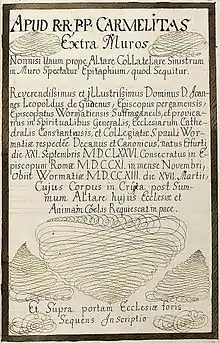 APUD RR·PP· CARMELITAS
Extra Muros
Nonnisi Unum prope Altare Collaterale Sinistrum
in Muro Spectatur Epitaphium, quod Sequitur.
Reverendissimus et jLLustrissimus Dominus D. Joan̄
nes Leopoldus de Gudenus, Episcopus pergamensis,
Episcopatus Wormatiensis Suffraganeus, et provica-
rius in Spiritualibus Generalis, Ecclesiarum Cathe-
dralis Constantiensis, et Collegiatae S. pauli Wor-
matiae respectivè Decanus et Canonicus, natus Erfurti
die XXI. Septembris M.D.C.LXXVI. Consecratus in E-
piscopum Romae M.D.CCXI. in mense Novembri,
Obiit Wormatiae M.D.CC.XIII. die XVII. Martii,
Cujus Corpus in Cripta post Sum-
mum ALtare hujus Ecclesiae et
Animam Coelis Requiescat in pace.
Et Supra portam Ecclesiae foris
Sequens Inscriptio